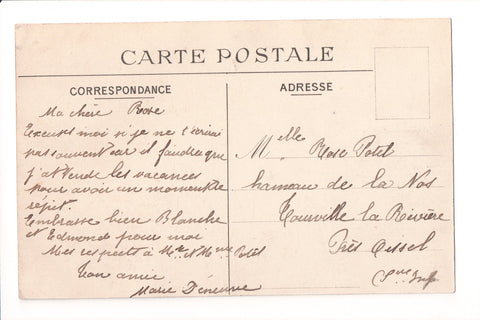 CARTE POSTALE
CORRESPONDANCE
Ma chère Rose
Excuse moi si je ne t'écrirai
pas souvent car il faudra que
j'attende les vacances
pour avoir un moment de
répit.
Embrasse bien Blanche
et Edmond pour moi
Mes respects à Mr et Mme Potel
Ton amie
Marie
ADRESSE
Melle Rose Potel
hameau de la Nos
Tourville la Rivière
Près Oissel
Sne Inf